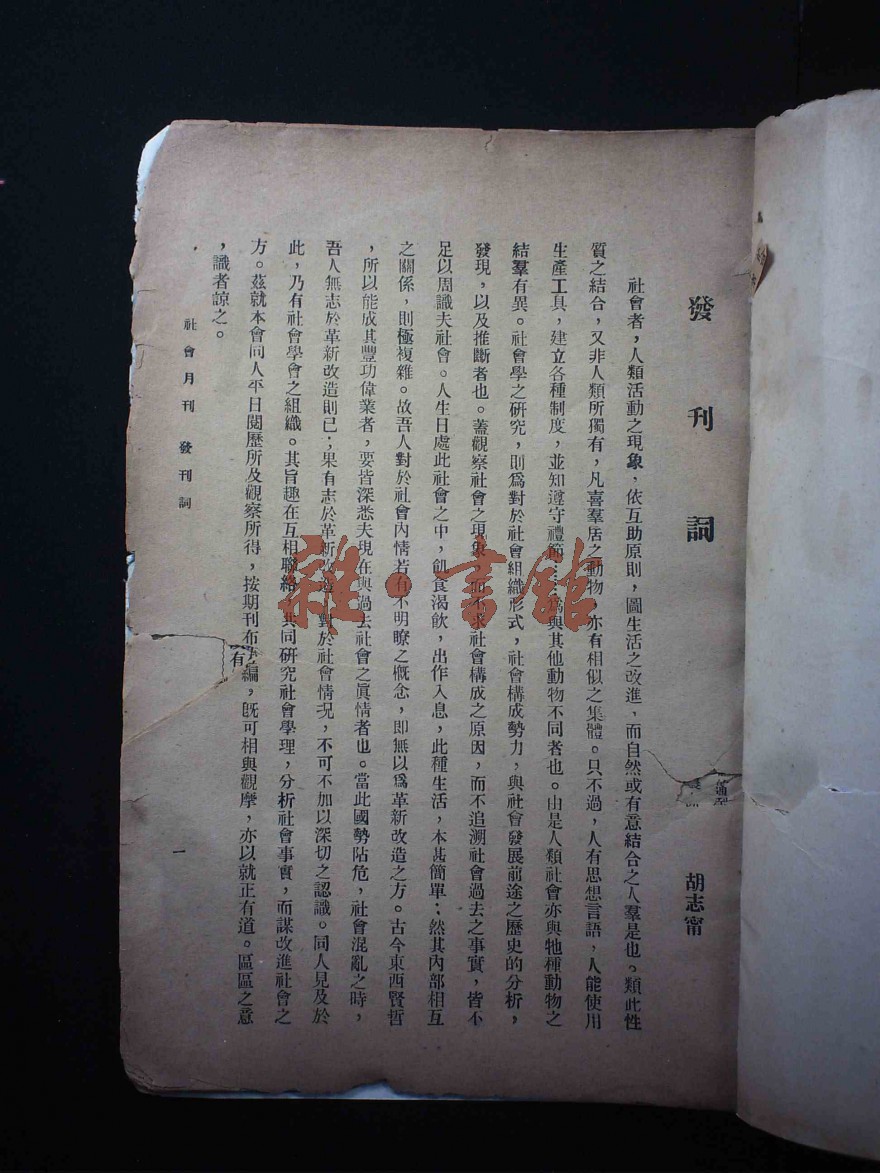 發刊詞
胡志甯
社會者，人類活動之現象，依互助原則，圖生活之改進，而自然或有意結合之人羣是也。類此性
質之結合，又非人類所獨有，凡喜羣居之動物，亦有相似之集體。只不過，人有思想言語，人能使用
生產工具，建立各種制度，並知遵守禮節，為與其他動物不同者也。由是人類社會亦與牠種動物之
結羣有異。社會學之研究，則爲對於社會組織形式，社會構成勢力，與社會發展前途之歷史的分析，
發現，以及推斷者也。蓋觀察社會之現象，而不求社會構成之原因，而不追溯社會過去之事實，皆不
足以周識夫社會。人生日處此社會之中，飢食渴飲，出作入息，此種生活，本甚簡單；然其內部相互
之關係，則極複雜。故吾人對於社會內情若有不明瞭之概念，即無以爲革新改造之方。古今東西賢哲
，所以能成其豐功偉業者，要皆深悉夫現在與過去社會之眞情者也。當此國勢阽危，社會混亂之時，
吾人無志於革新改造則已；果有志於革新改造，對於社會情況，不可不加以深切之認識。同人見及於
此，乃有社會學會之組織。其旨趣在互相聯絡，共同研究社會學理，分析社會事實，而謀改進社會之
方。茲就本會同人平日閱歷所及觀察所得，按期刊布編，旣可相與觀摩，亦以就正有道。區區之意
，識者諒之。
社會月刊 發刊詞
一
有
雜·書館